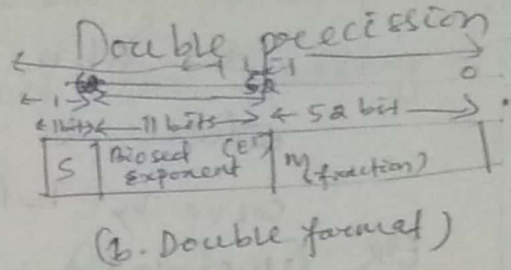 Double precission
52 0
← 1 → 
← 1 bit → ← 11 bits → ← 52 bit →
S Biosed (E') Exponent M (fraction)
(b. Double format)